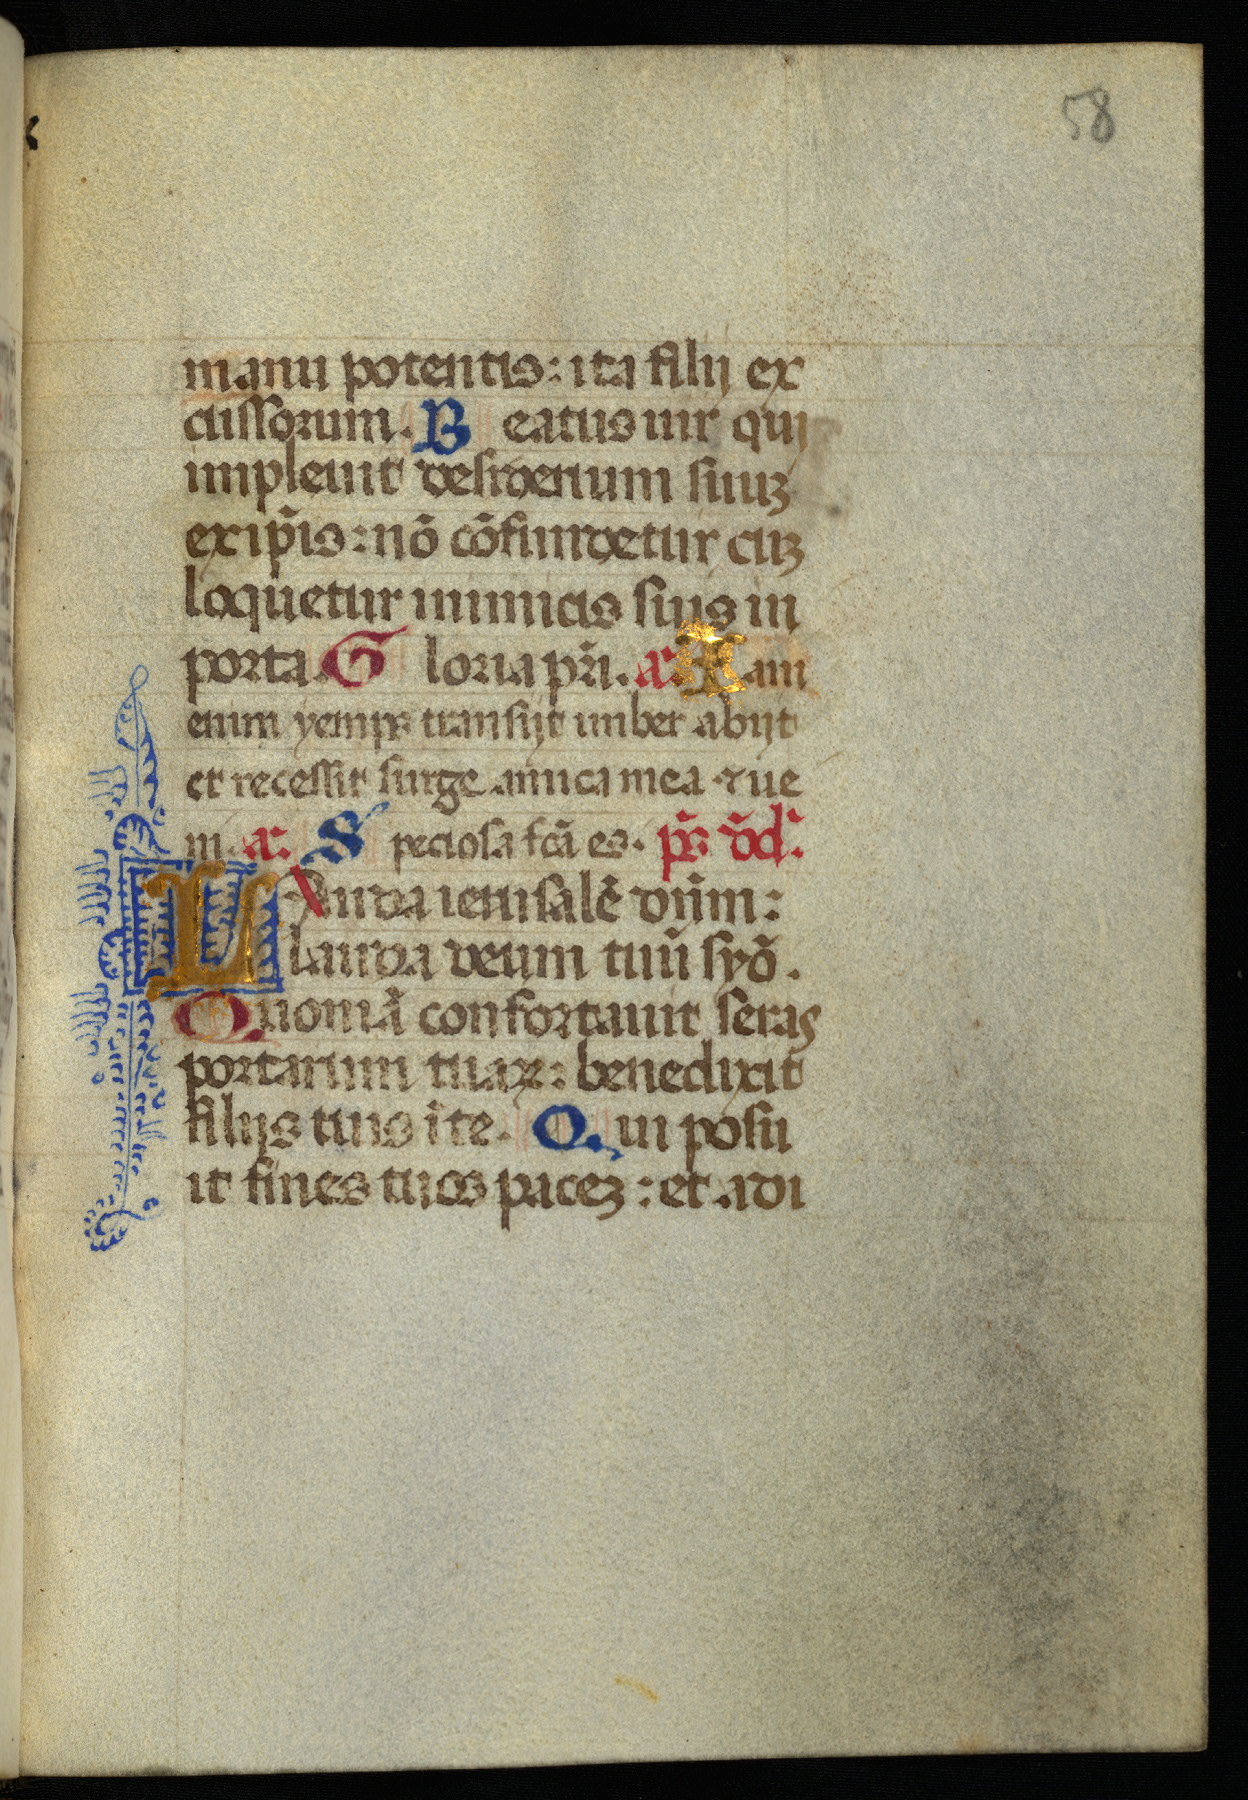 58
manu potentis: ita filij ex
cussorum. B eatus uir qui
impleuit desiderium suuꝫ
ex ip̄is: nō cōfundetur cuꝫ
loquetur inimicis suis in
porta. G loria pr̄i. a. Iam
enim yemps transijt imber abijt
et recessit surge amica mea ⁊ ue
ni. a. S peciosa fcā es. ps̄ dd̄.
LAuda ierusalē dn̄m:
lauda deum tuū syō.
Quoniā confortauit seras
portarum tuaꝝ: benedixit
filijs tuis ī te. Qui posu
it fines tuos paceꝫ: et adi